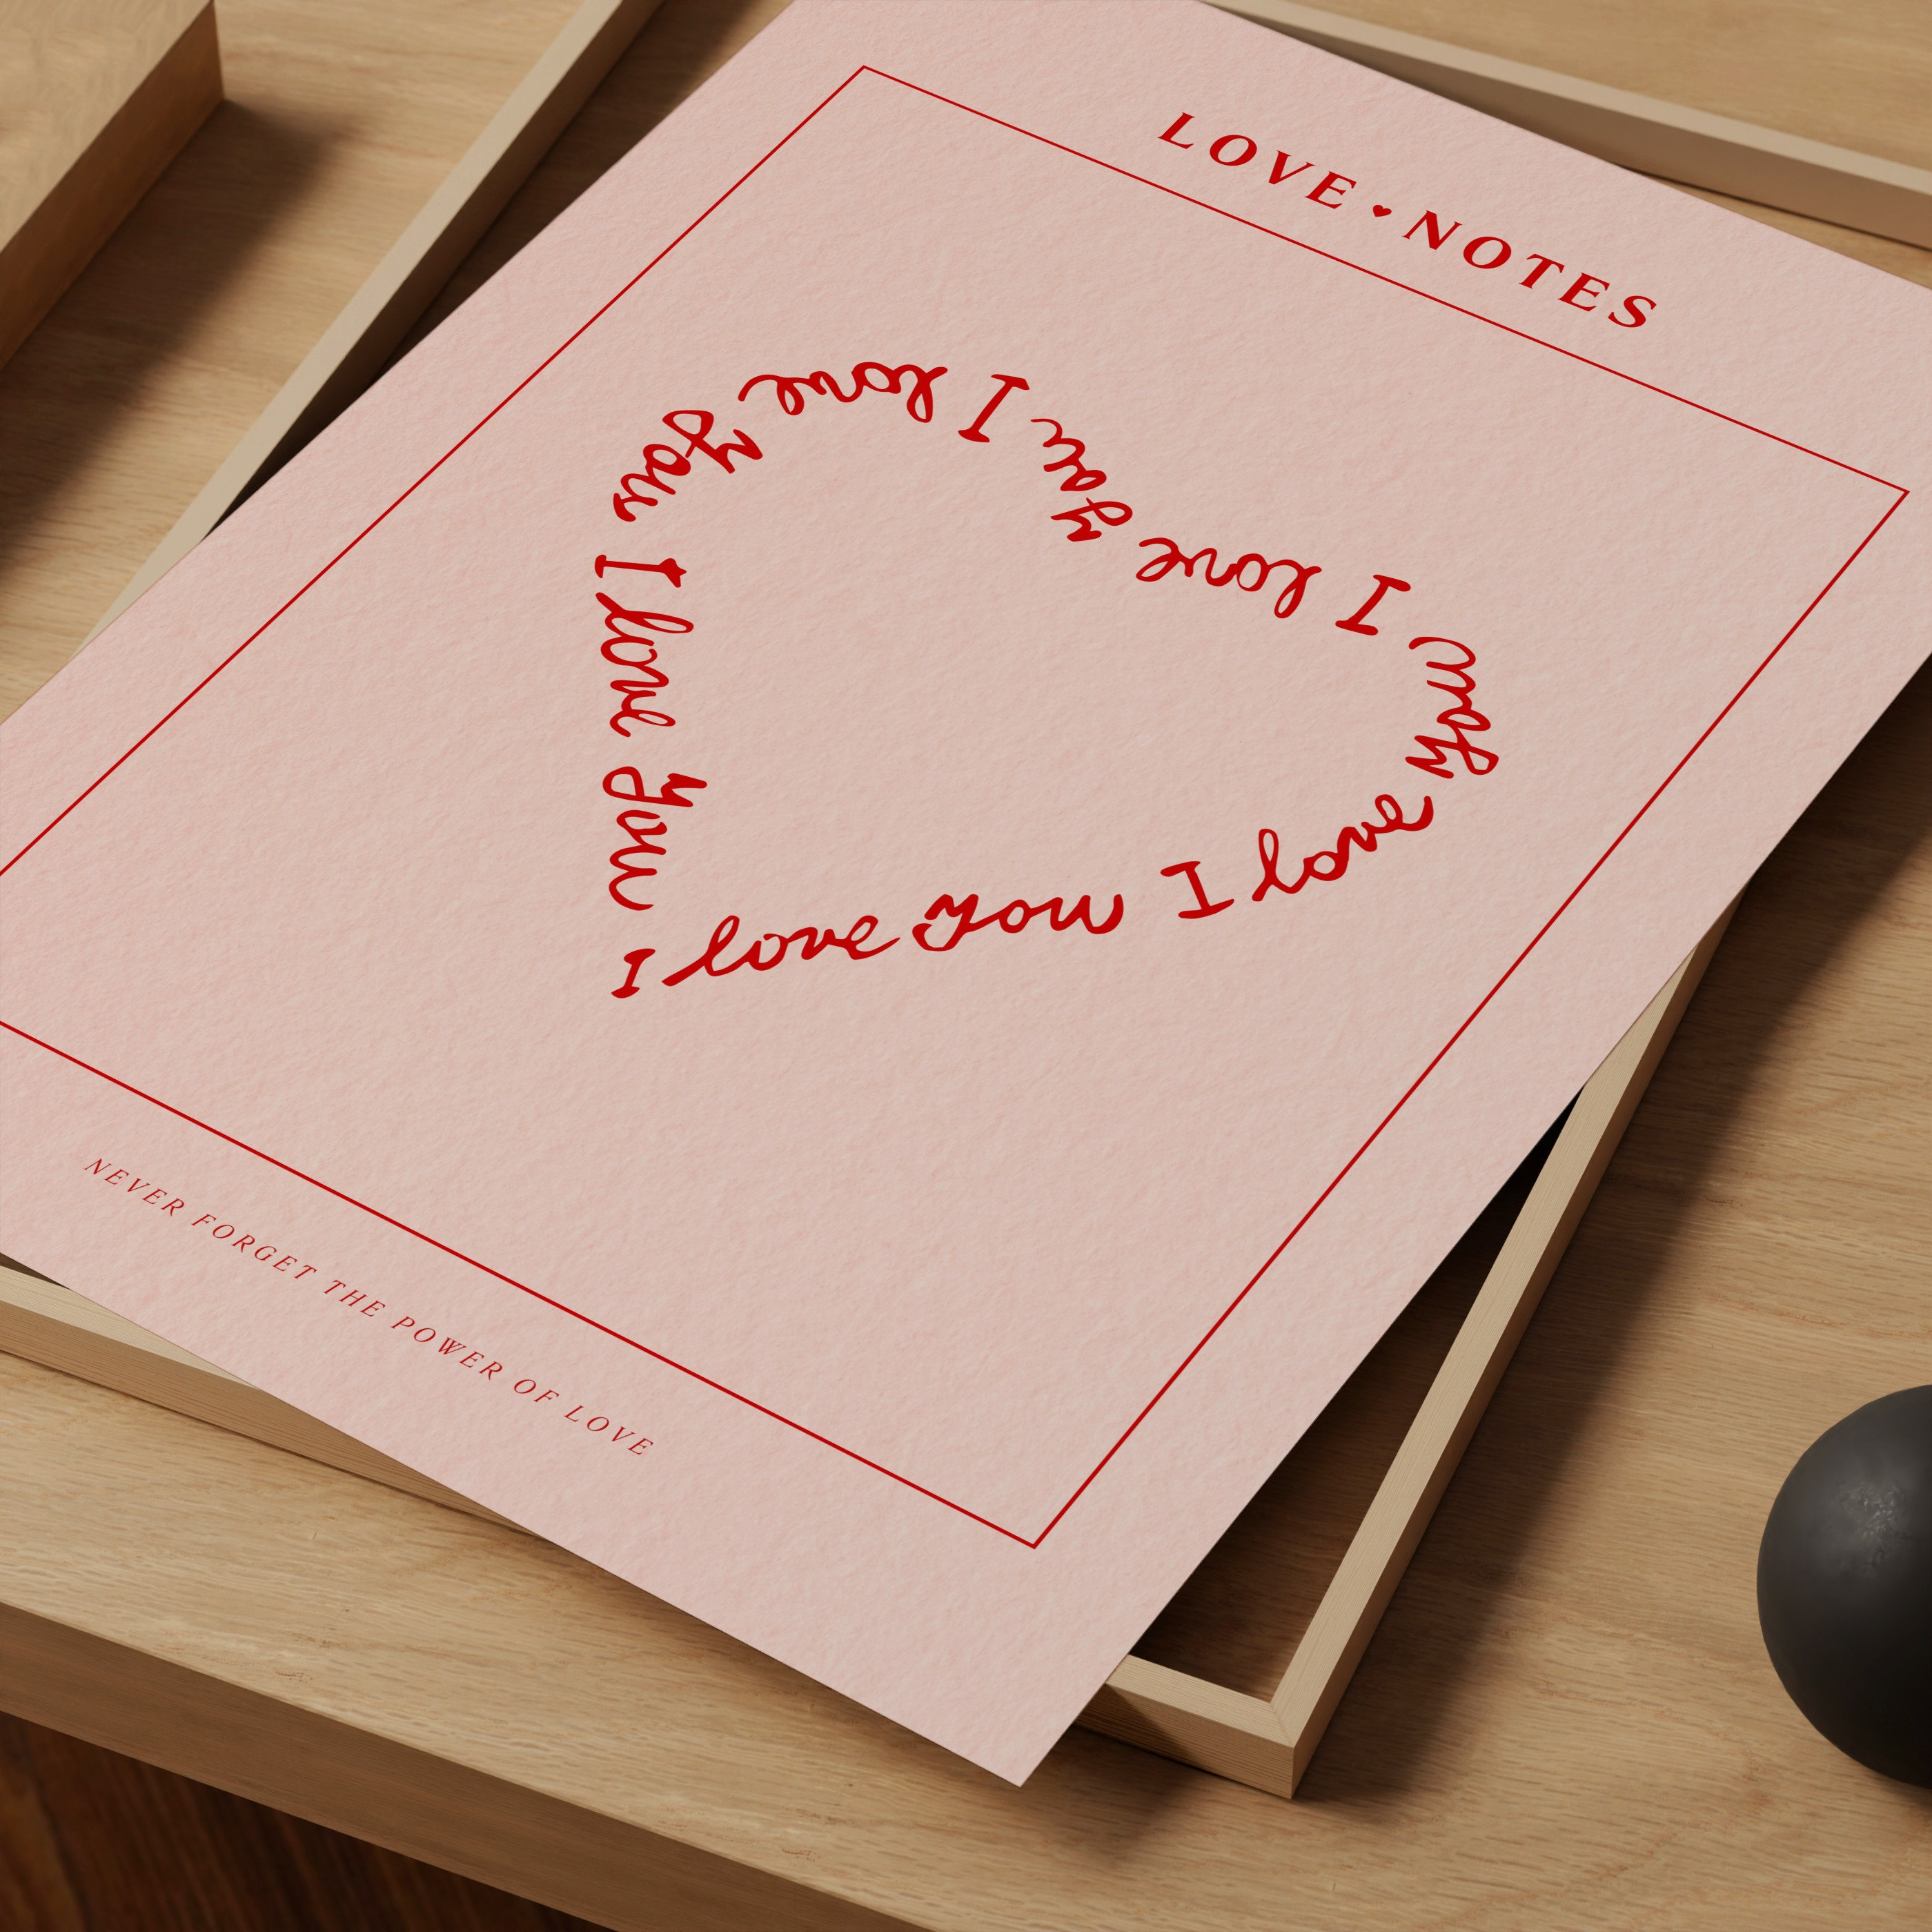 LOVE ♥ NOTES
I love you I love you I love you I love you I love you
NEVER FORGET THE POWER OF LOVE